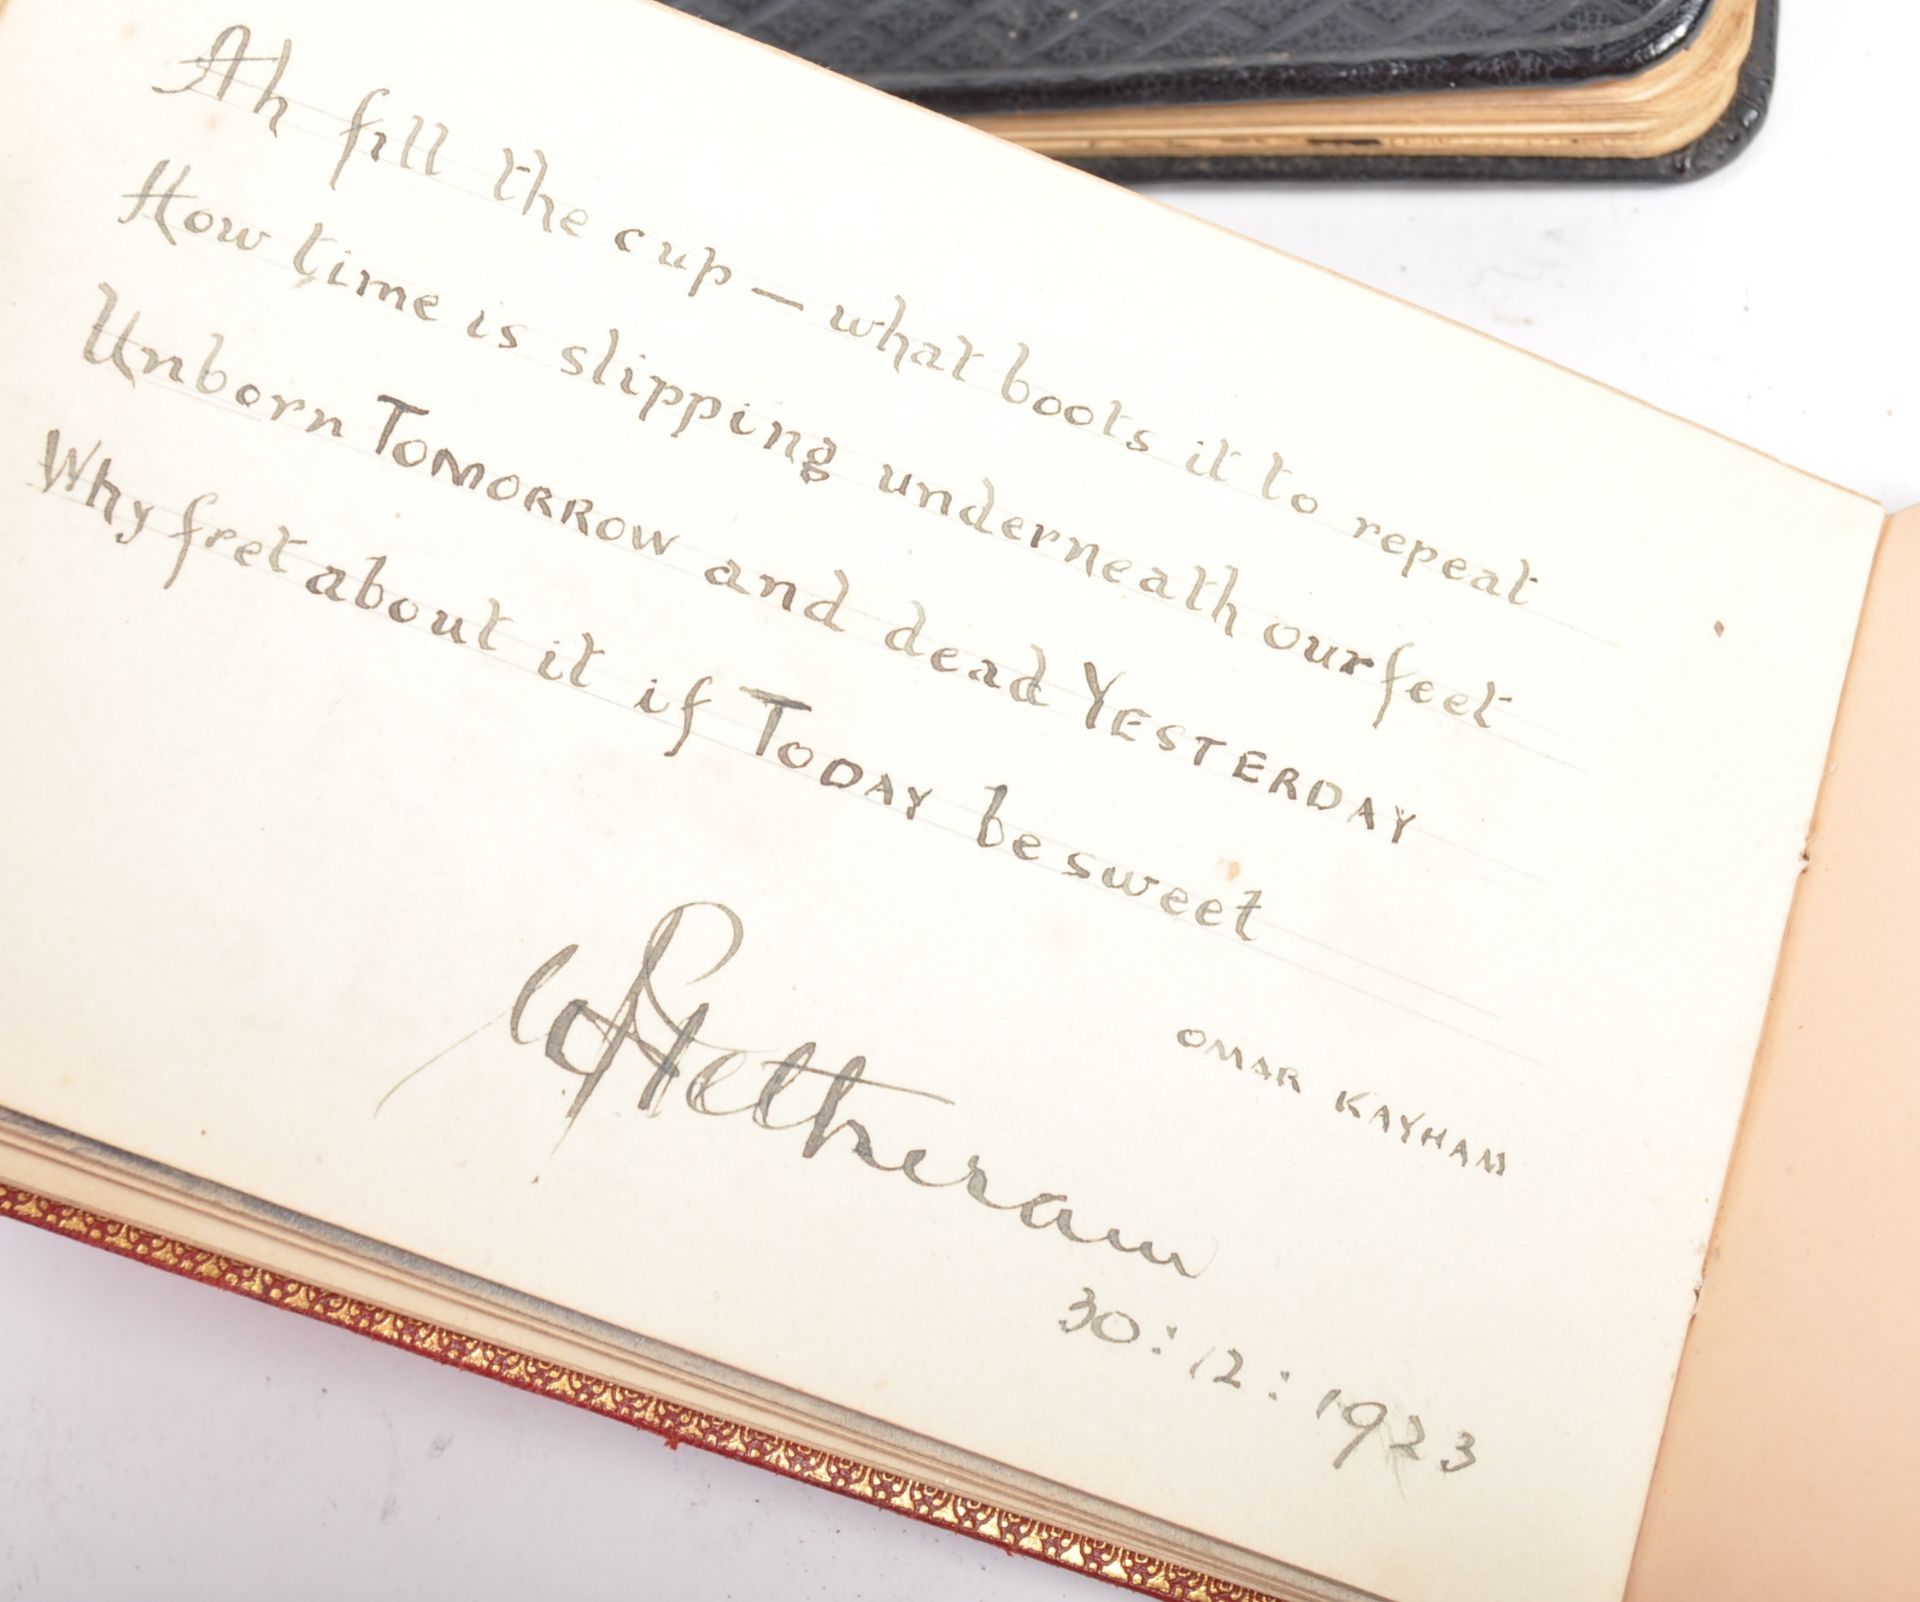 Ah fill the cup — what boots it to repeat
How time is slipping underneath our feet
Unborn TOMORROW and dead YESTERDAY
Why fret about it if TODAY be sweet
OMAR KAYHAM
Petheram
30:12:1923